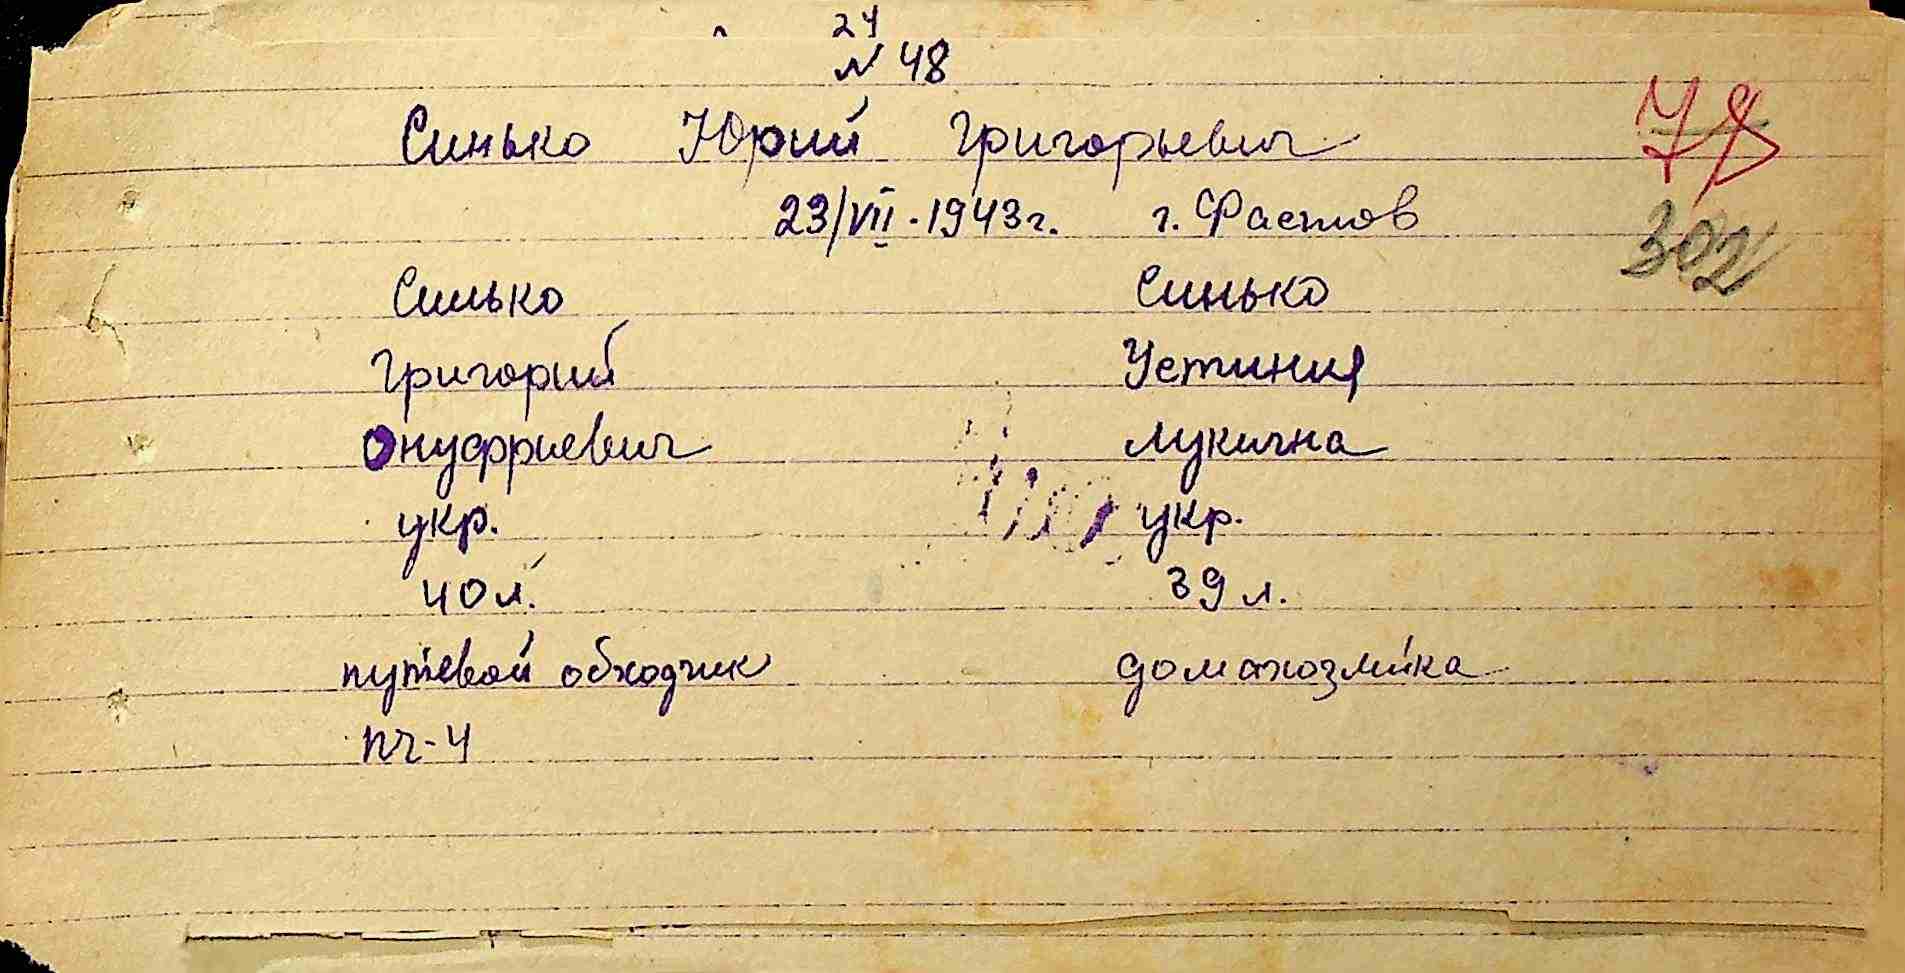 24
N 48
Синько Юрий Григорьевич
78
23/VII.1943г. г. Фастов
302
Синько Синько
Григорий Устиния
Онуфриевич Лукична
укр. укр.
40 л. 39 л.
путевой обходчик домохозяйка
ПЧ-4